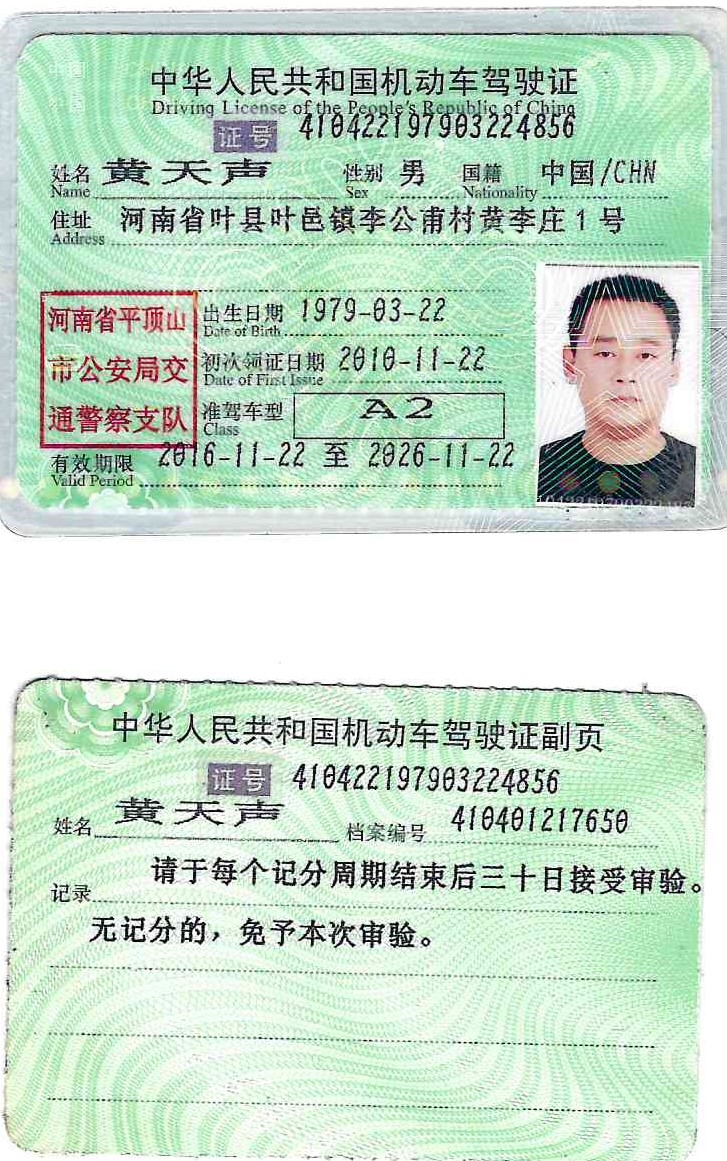 中华人民共和国机动车驾驶证
Driving License of the People's Republic of China
证号 410422197903224856
姓名 黄天声 性别 男 国籍 中国/CHN
Name Sex Nationality
住址 河南省叶县叶邑镇李公甫村黄李庄1号
Address
河南省平顶山
市公安局交
通警察支队
出生日期 1979-03-22
Date of Birth
初次领证日期 2010-11-22
Date of First Issue
准驾车型 A2
Class
有效期限 2016-11-22 至 2026-11-22
Valid Period
中华人民共和国机动车驾驶证副页
证号 410422197903224856
姓名 黄天声 档案编号 410401217650
记录 请于每个记分周期结束后三十日接受审验。
无记分的，免予本次审验。